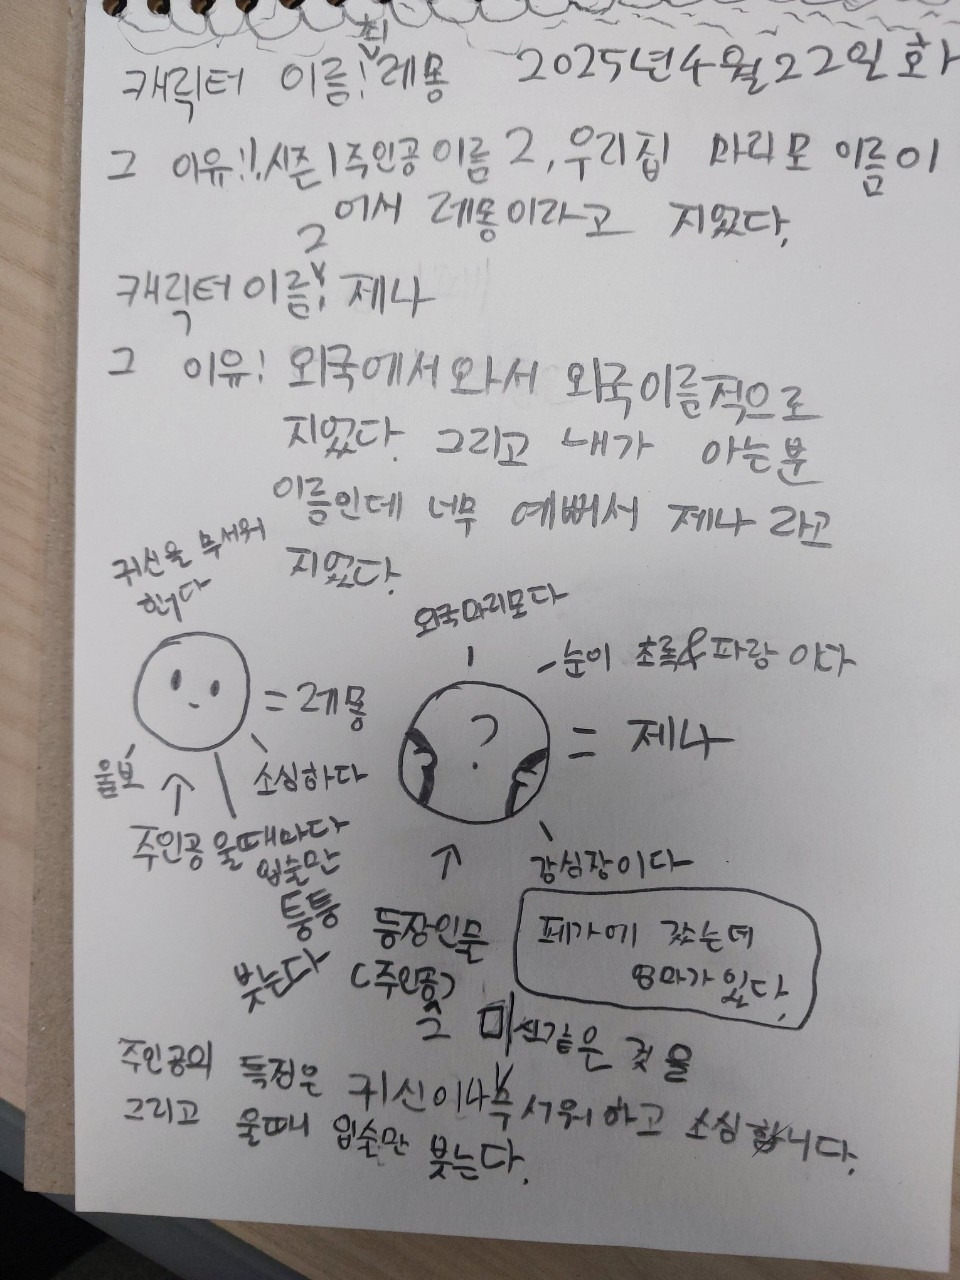 캐릭터 이름! 최레몽 2025년4월22일화
그 이유!1.시즌1주인공이름2,우리집 마리모 이름이
어서 레몽이라고 지었다.
캐릭터이름2! 제나
그 이유! 외국에서와서 외국이름적으로
지었다. 그리고 내가 아는분
이름인데 너무 예뻐서 제나 라고
지었다.
귀신을 무서워
한다
외국마리모다
눈이 초록&파랑 이다
= 레몽
= 제나
울보
소심하다
주인공 울때마다
입술만
퉁퉁
붓는다
강심장이다
등장인물
(주인공2)
폐가에 갔는데
악마가 있다.
주인공의 특징은 귀신이나 미신같은 것을 무서워하고 소심합니다.
그리고 울때 입술만 붓는다.